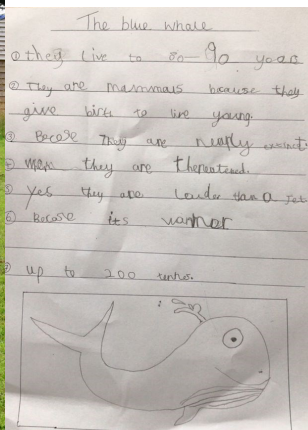 The blue whale
① they live to 80-90 years
② They are mammals because they
give birth to live young.
③ Becase They are nearly extinct
④ when they are thereatened.
⑤ Yes they are louder than a jet
⑥ Becase its warmer
⑦ up to 200 tonnes.